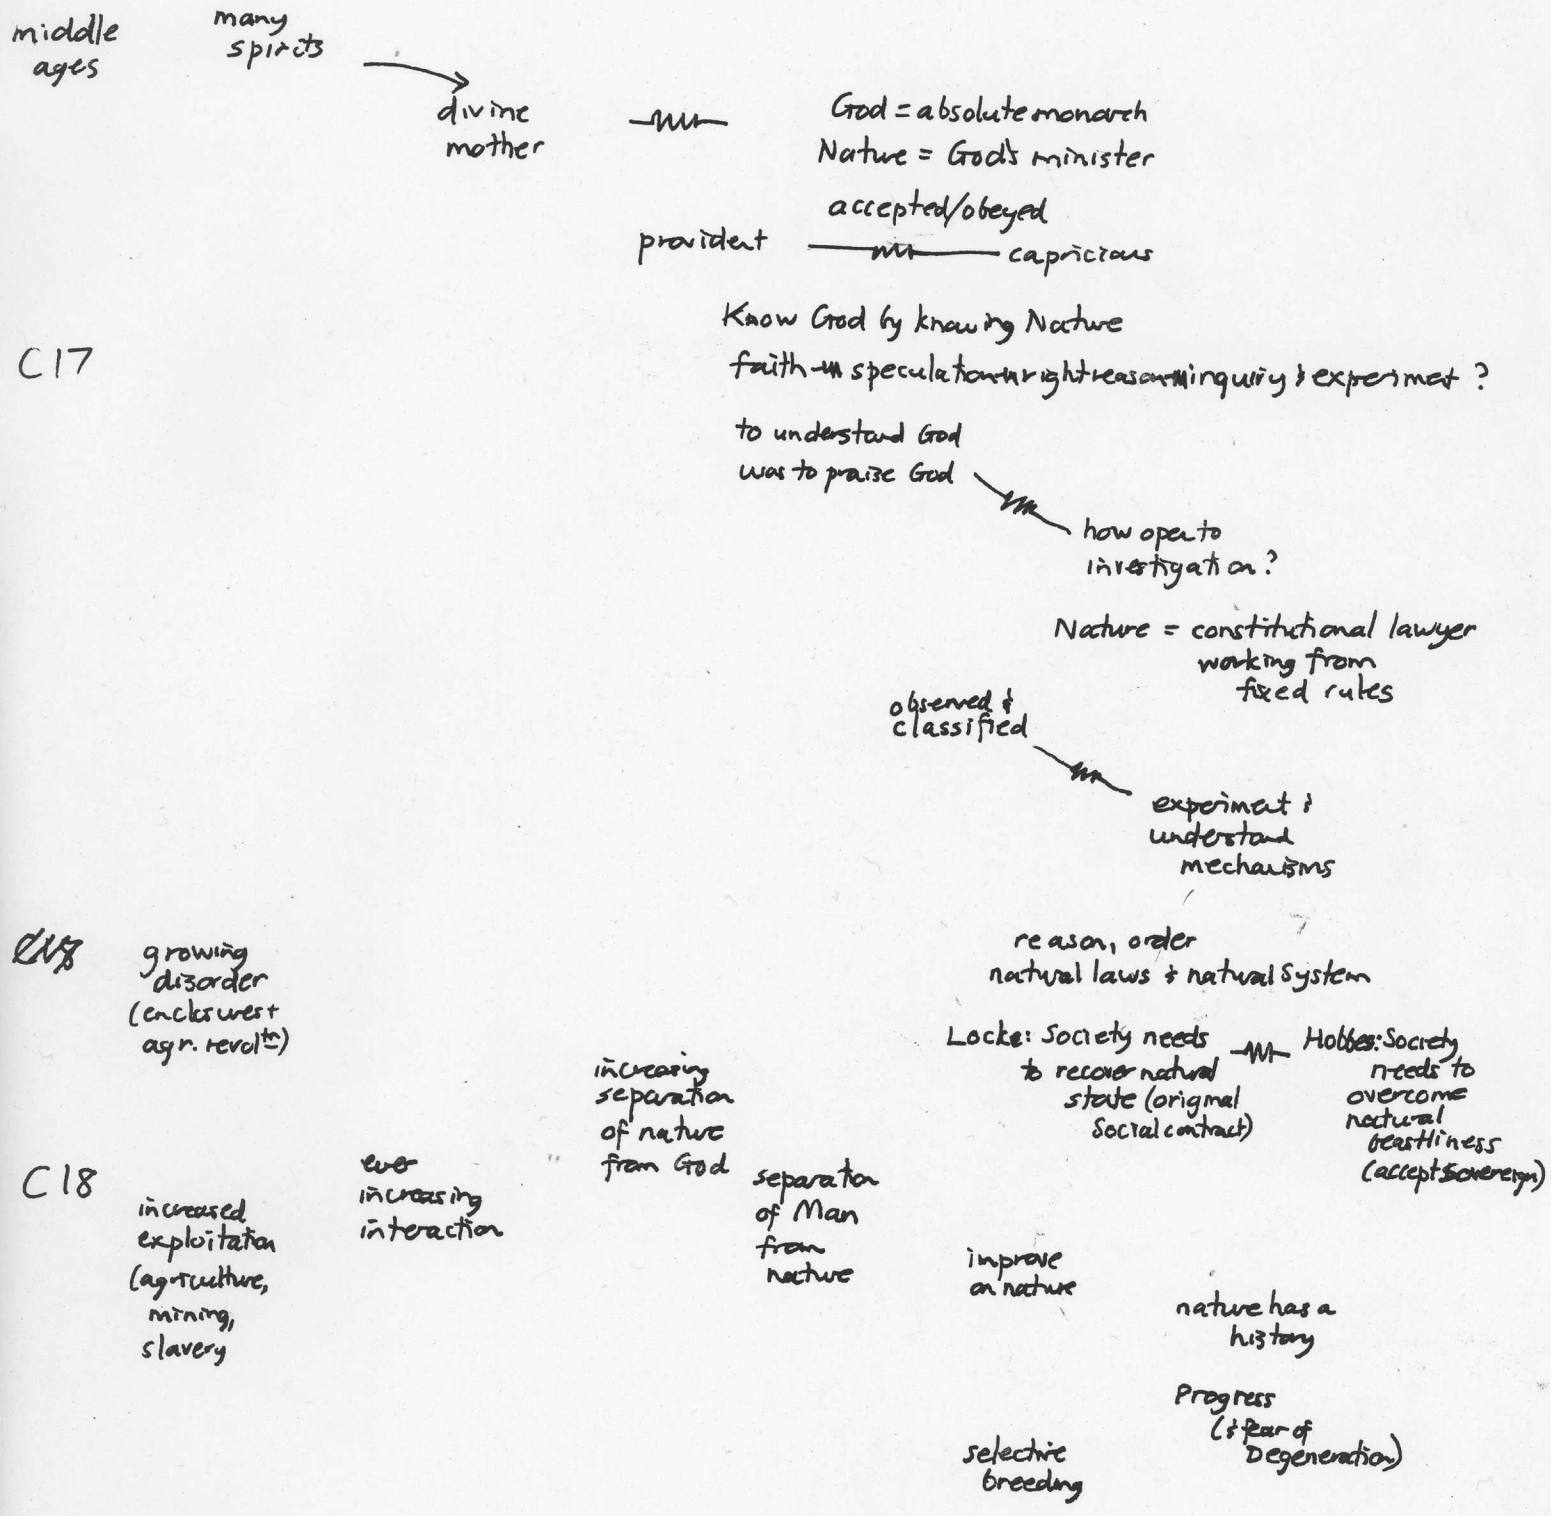 middle
ages
many
spirits
divine
mother
God = absolute monarch
Nature = God's minister
accepted/obeyed
provident
capricious
Know God by knowing Nature
C17
faith speculation right reason inquiry & experiment ?
to understand God
was to praise God
how open to
investigation?
Nature = constitutional lawyer
working from
fixed rules
observed &
classified
experiment &
understand
mechanisms
growing
disorder
(enclosures +
agr. revoltn)
reason, order
natural laws & natural System
Locke: Society needs
to recover natural
state (original
Social contract)
Hobbes: Society
needs to
overcome
natural
beastliness
(accept Sovereign)
increasing
separation
of nature
from God
C18
increased
exploitation
(agriculture,
mining,
slavery
ever
increasing
interaction
separation
of Man
from
nature
improve
on nature
nature has a
history
Progress
(& fear of
Degeneration)
selective
breeding